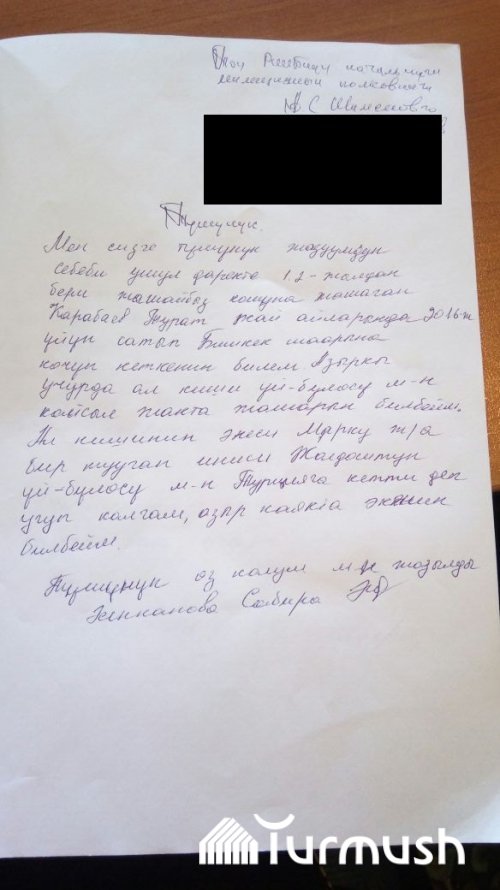 начальниги
милициянын полковниги
Түшүнүк.
Мен сизге түшүнүк жазуумдун
себеби ушул даректе 12-жылдан
бери жашайбыз кошуна жашаган
Карабаев Турат жай айларында 2016-ж
үйүн сатып Бишкек шаарына
көчүп кеткенин билем. Азыркы
учурда ал киши үй-бүлөсү м-н
кайсыл жакта жашарын билбейм.
Ал кишинин энеси Марку ж/а
бир тууган иниси Жолдошитун
үй-бүлөсү м-н Турцияга кетти деп
угуп калгам, азыр каякта экенин
билбейм.
Түшүнүк өз колум м-н жазылды
Сабира
Turmush